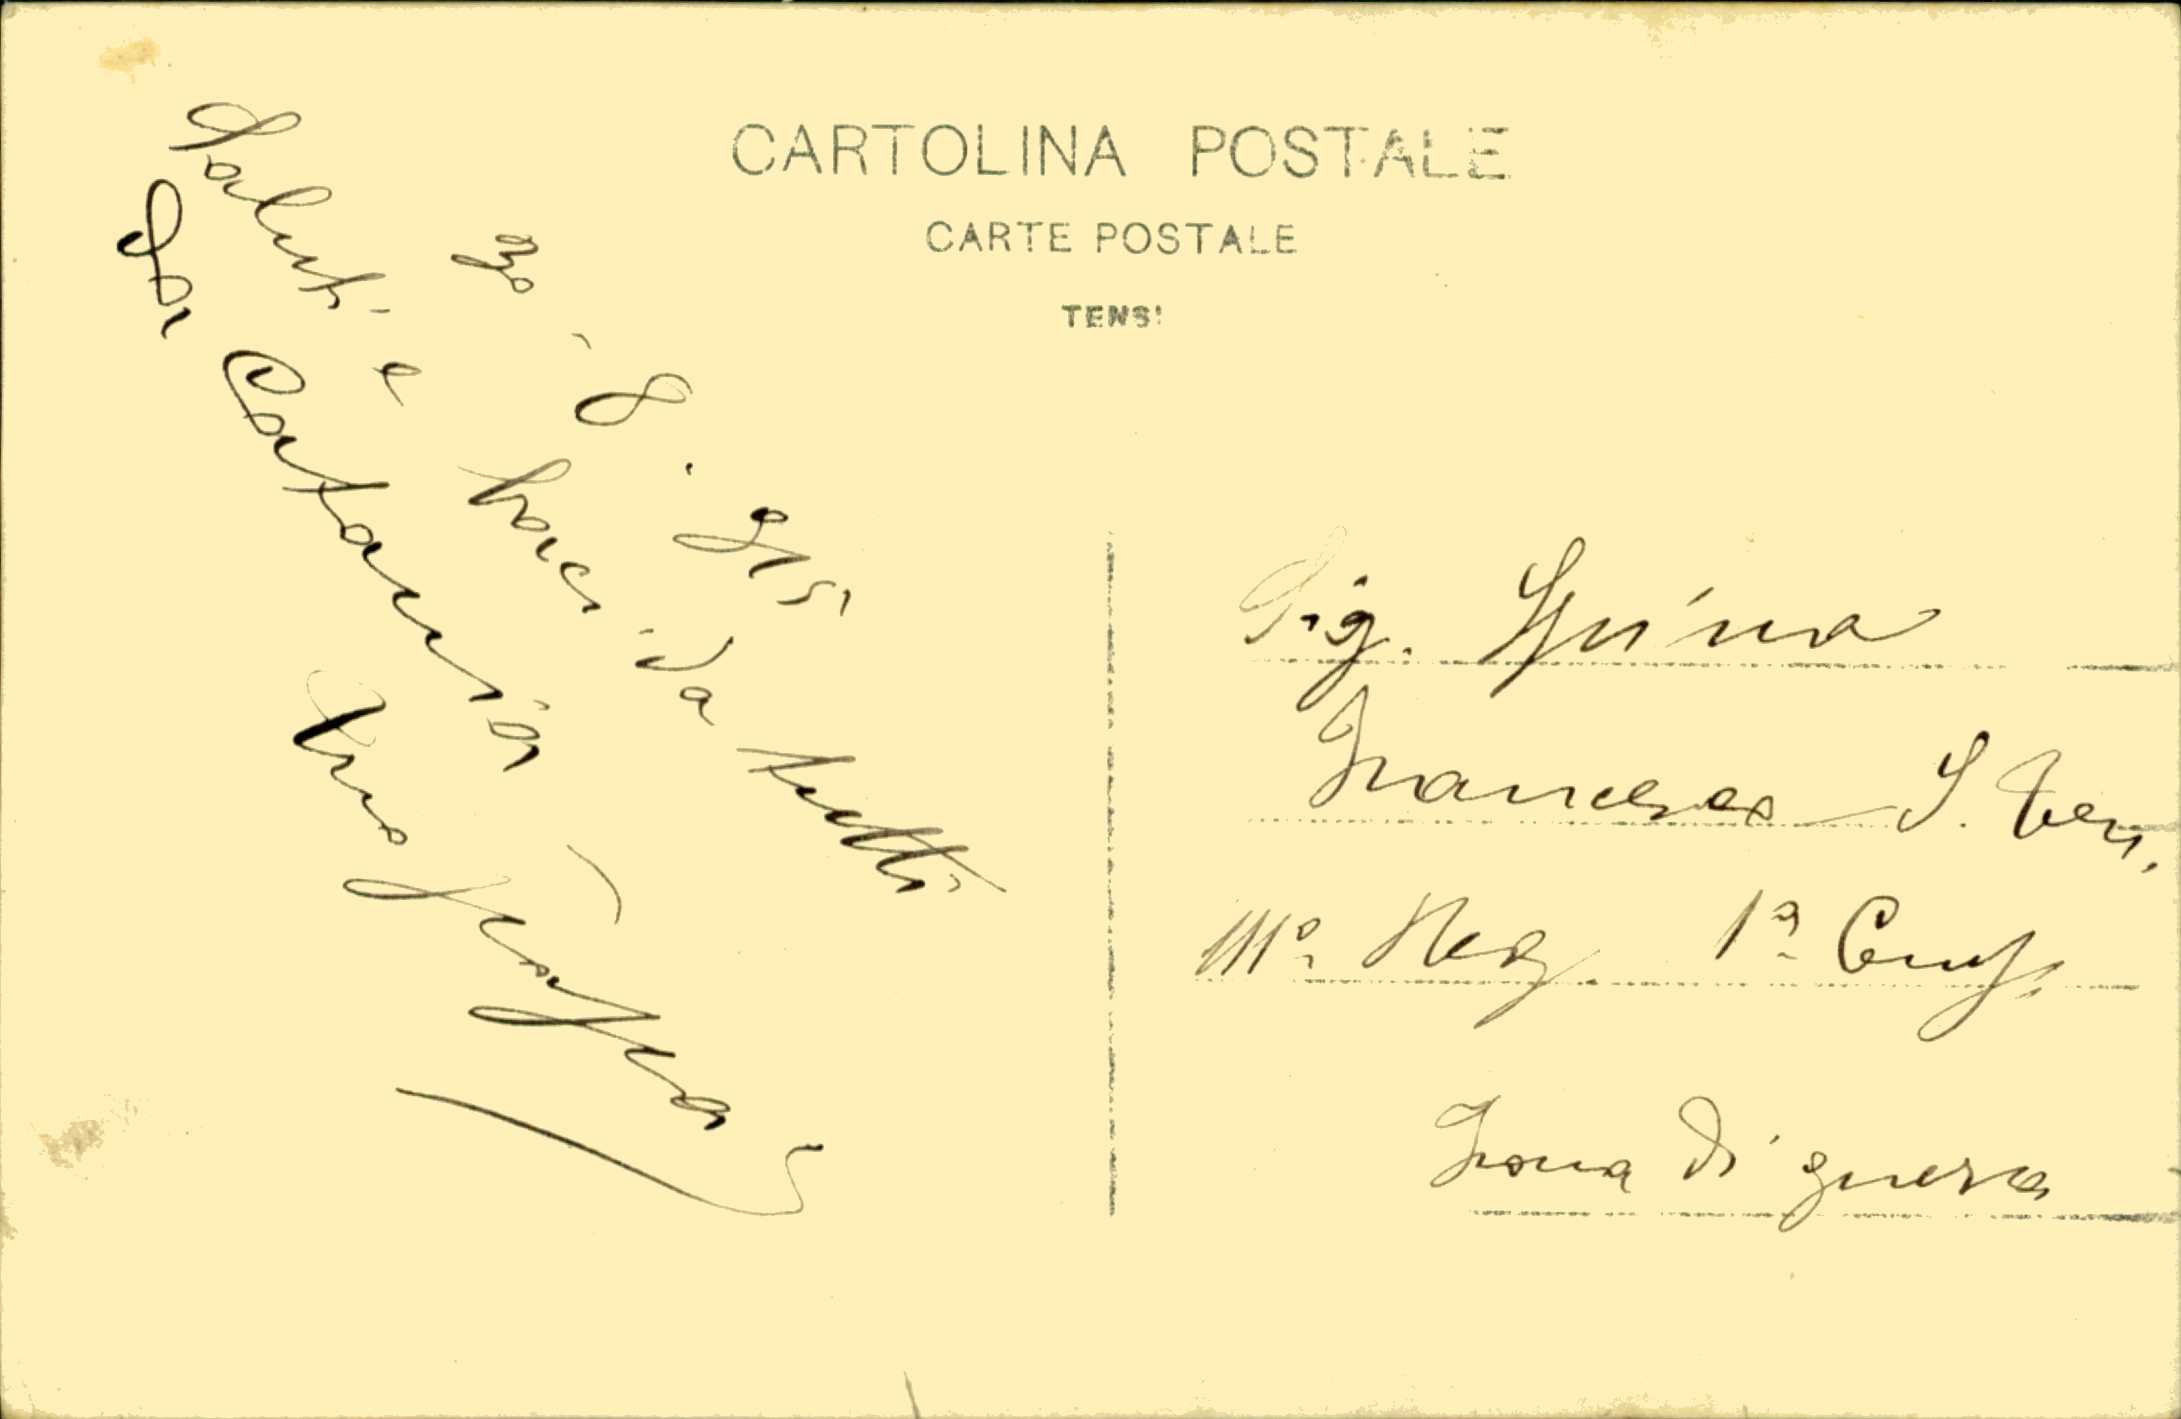 CARTOLINA POSTALE
CARTE POSTALE
TENSI
30 - 8. 915
Saluti e baci da tutti
Per Catania
Sig. Spina
Francesco S. Ten.
111º Reg. 1ª Comp.
Zona di guerra